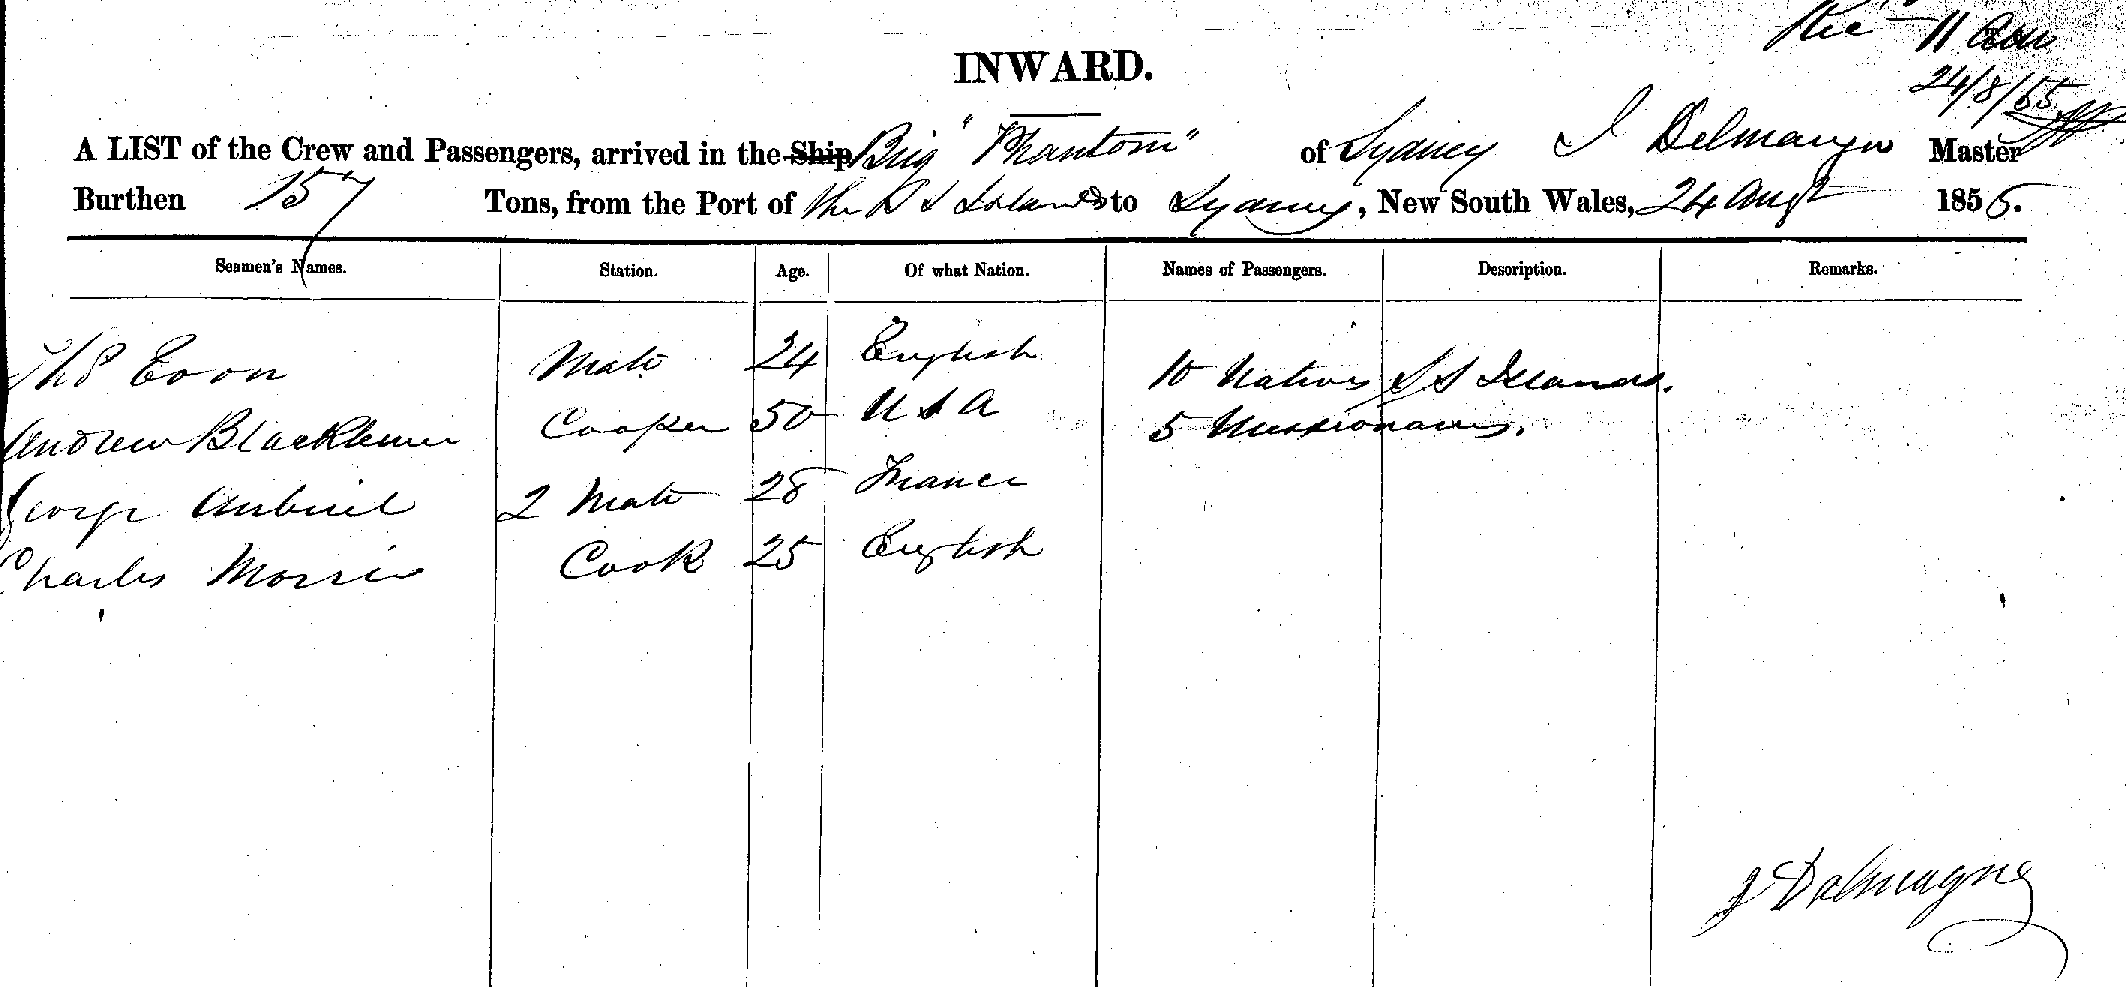 Rec 11
24/8/55
INWARD.
A LIST of the Crew and Passengers, arrived in the Ship Brig "Phantom" of Sydney J Delmaryne Master
Burthen 157 Tons, from the Port of the S S Islands to Sydney, New South Wales, 24 Augt 1855.
Seamen's Names. Station. Age. Of what Nation. Names of Passengers. Description. Remarks.
Thos Coon Mate 24 English 10 Natives S S Islands.
Andrew Cooper 50 U S A 5 Missionaries.
George 2 Mate 28 France
Charles Morris Cook 25 English
J Dalmagne